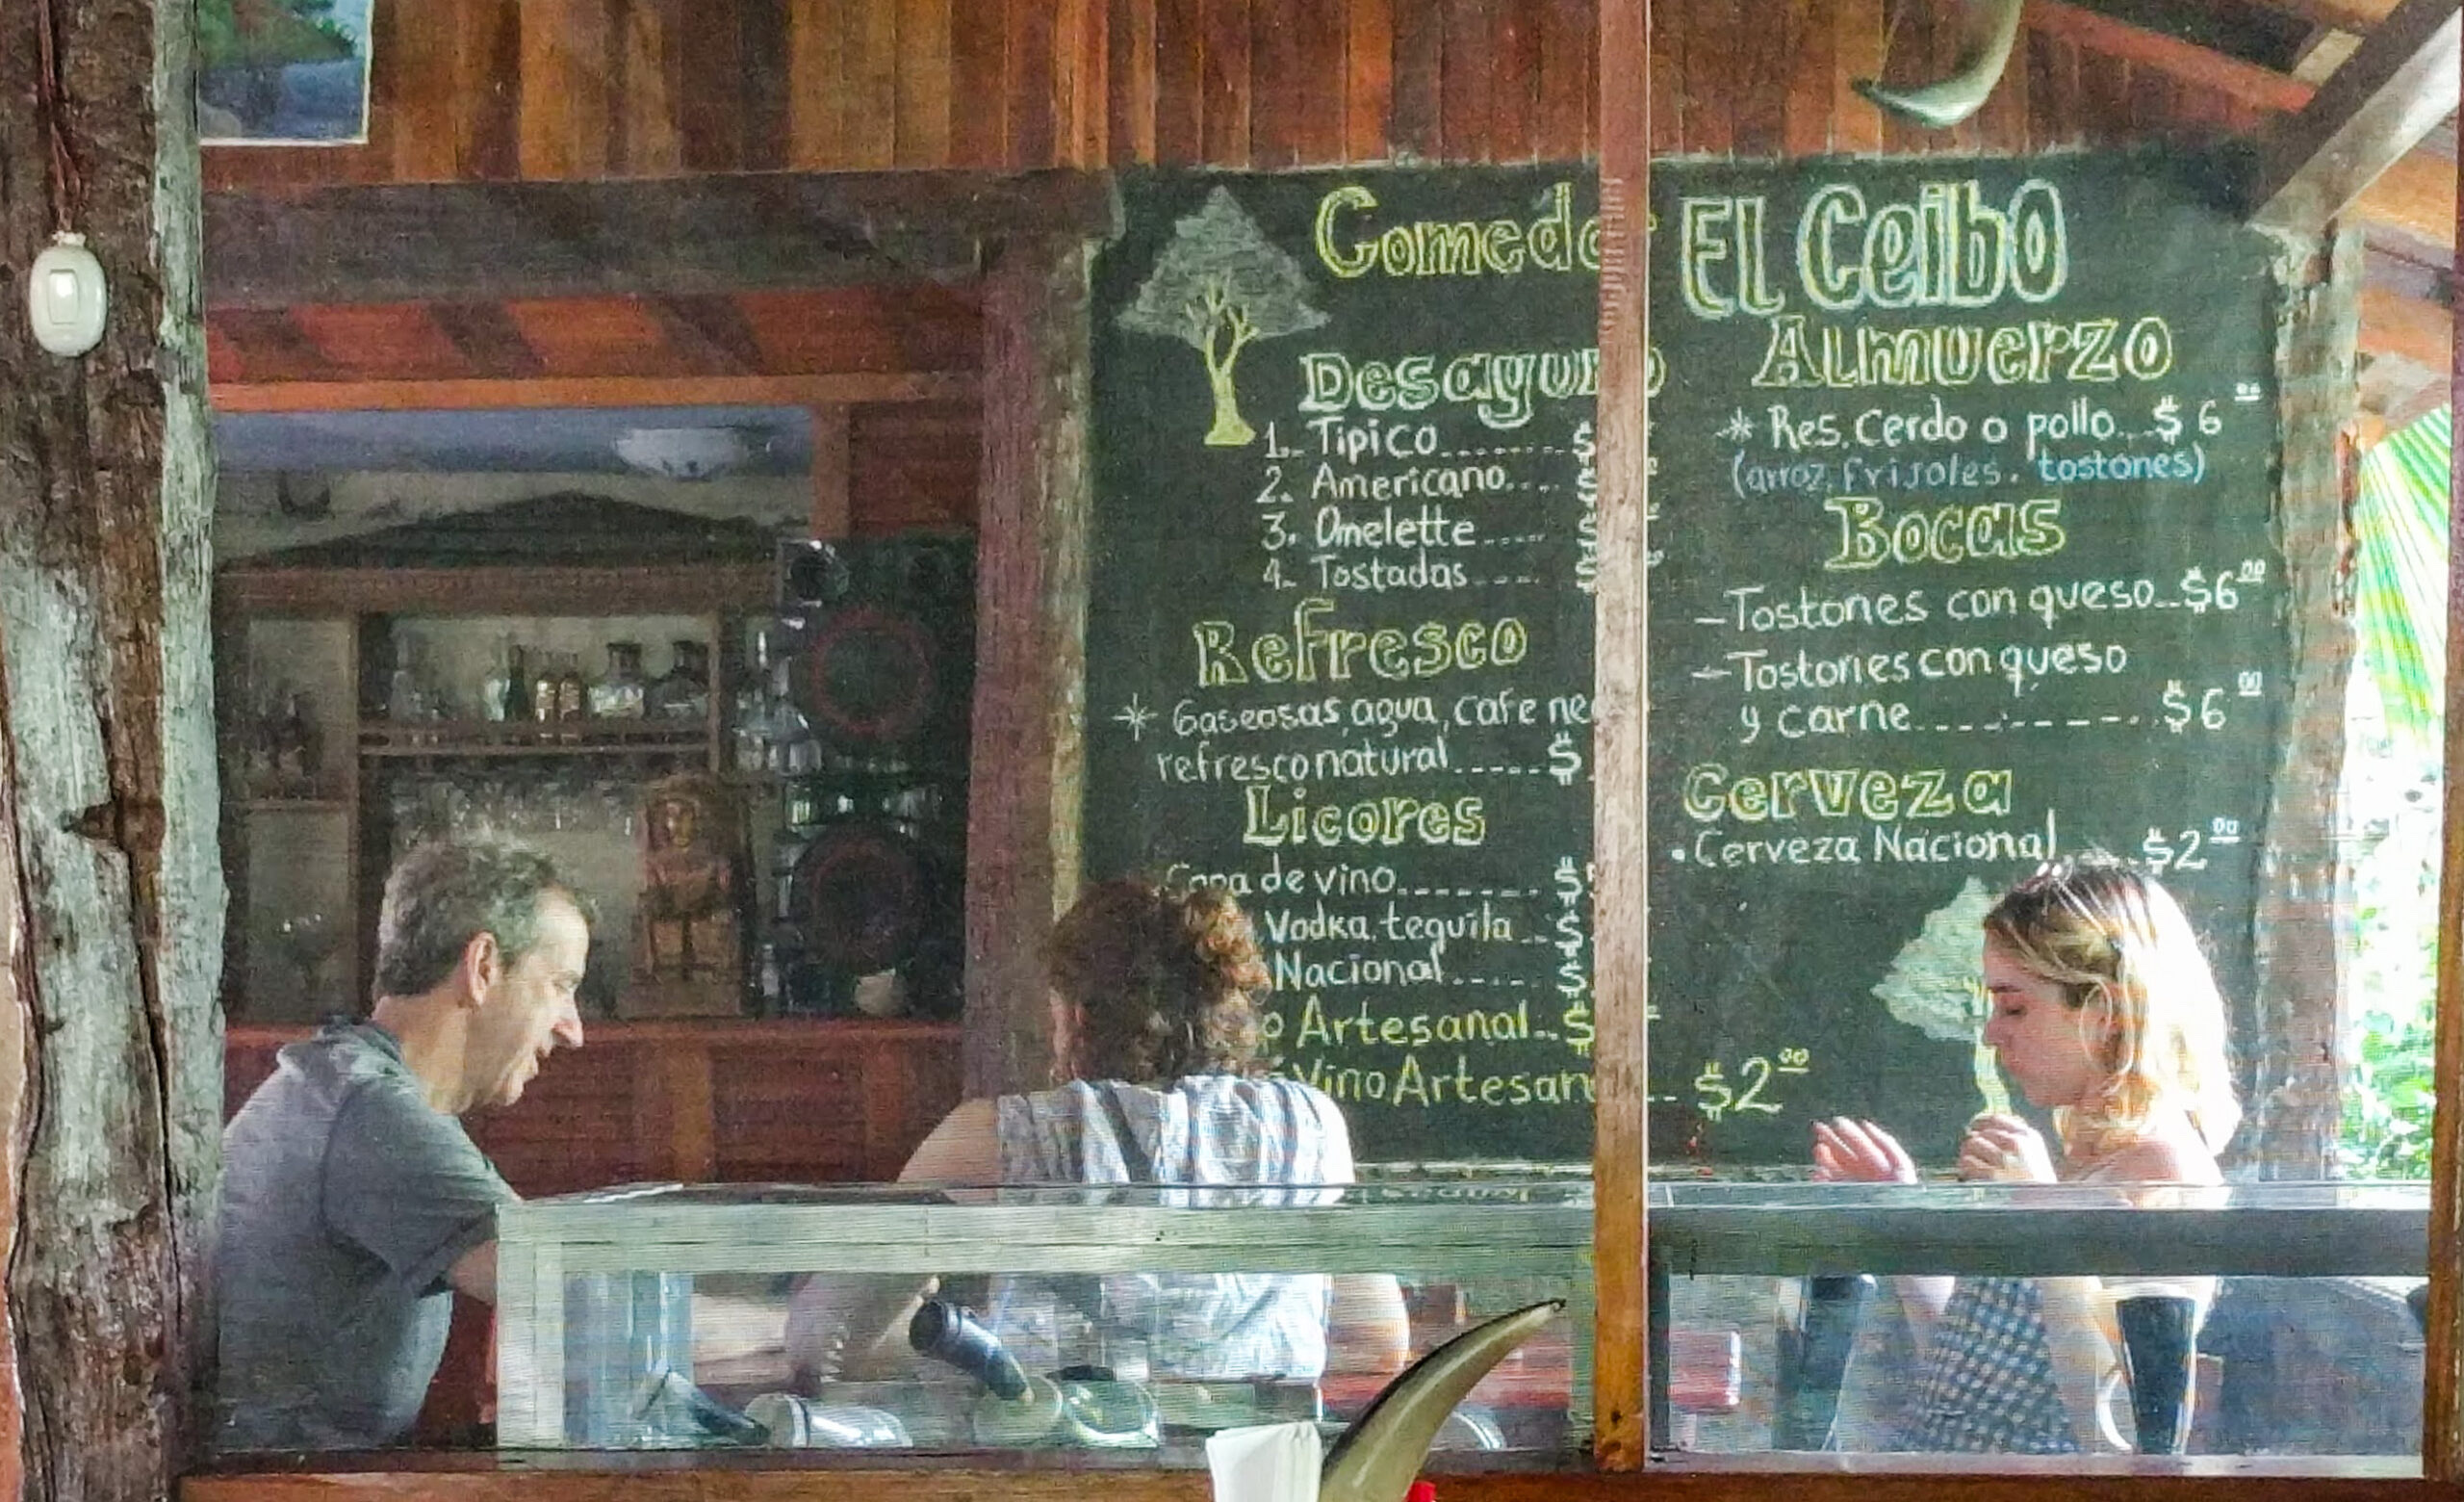 Comedo El Ceibo
Desayuno
1. Tipico........$
2. Americano....$
3. Omelette.....$
4. Tostadas....$
Refresco
* Gaseosas, agua, cafe
refresco natural.....$
Licores
Copa de vino.......$
Vodka, tequila..$
Nacional....$
Artesanal..$
Vino Artesan .. $2.00
Almuerzo
* Res, Cerdo o pollo...$6
(arroz, frijoles, tostones)
Bocas
- Tostones con queso..$6.00
- Tostones con queso
y carne.............$6.00
Cerveza
. Cerveza Nacional ...$2.00